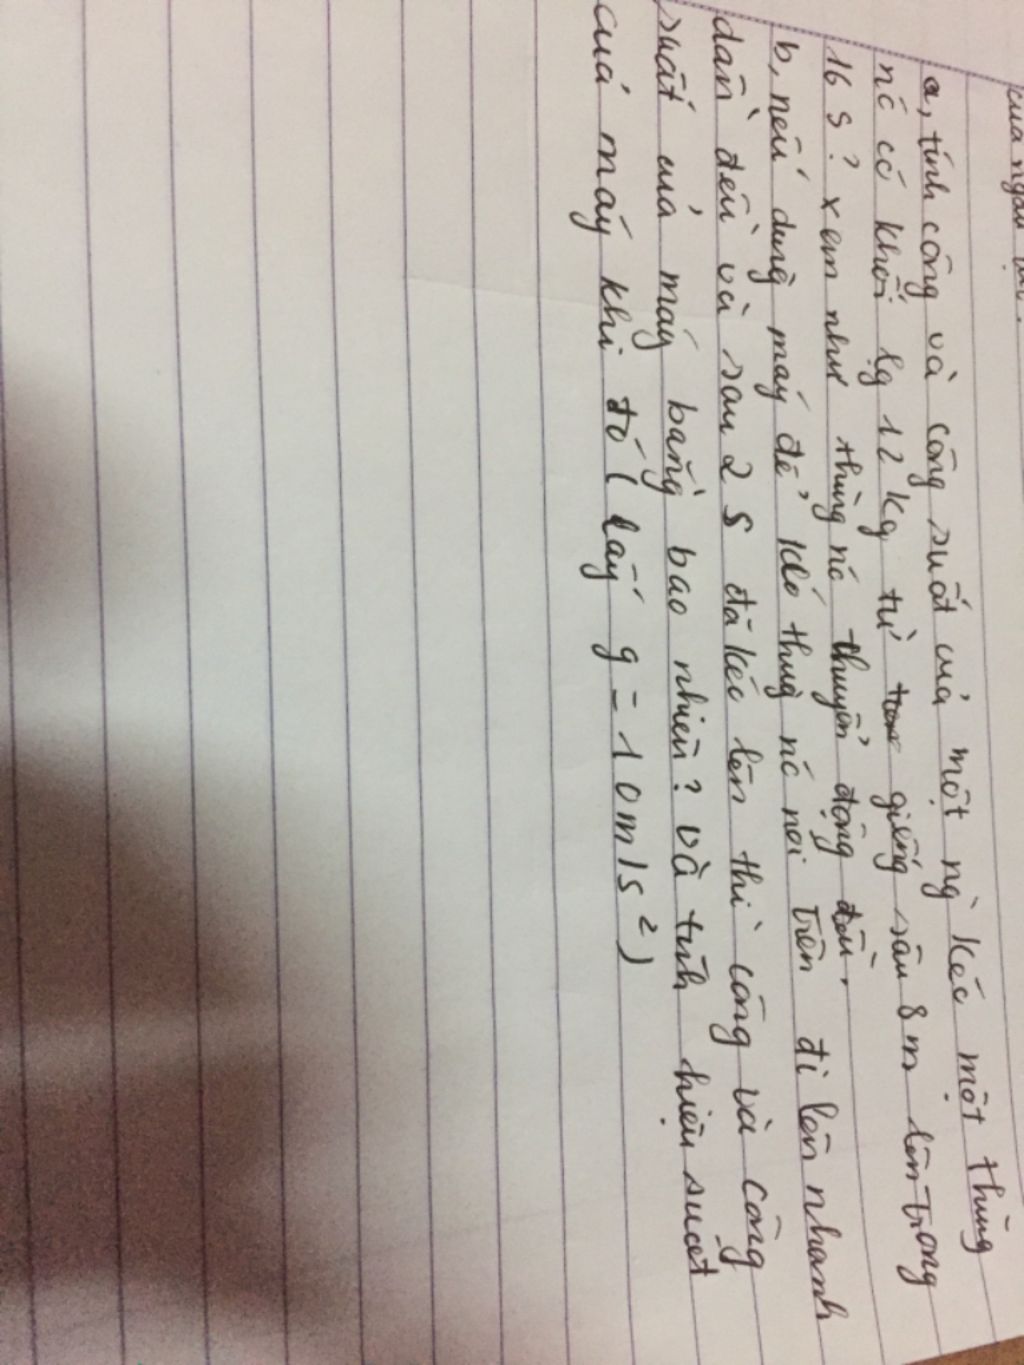 a, tính công và công suất của một ng` kéo một thùng
nc có khối lg 12 kg từ giếng sâu 8m lên trong
16 s? xem như thùng nc chuyển động đều.
b, nếu dùng máy để kéo thùng nc nói trên đi lên nhanh
dần đều và sau 2 s đã kéo lên thì công và công
suất của máy bằng bao nhiêu? và tính hiệu suất
của máy khi đó (lấy g = 10m/s²)